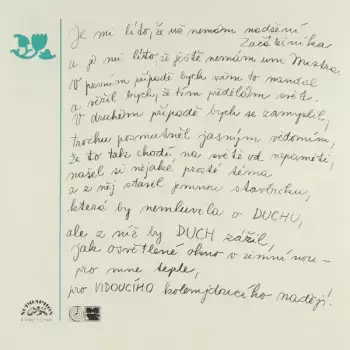 Je mi líto, že už nemám nadšení
Začátečníka
a je mi líto, že ještě nemám um Mistra.
V prvním případě bych vám to nandal
a věřil bych, že tím předělám svět.
V druhém případě bych se zamyslil,
trochu posmutněl jasným vědomím,
že to tak chodí, na světě od nepaměti,
našel si nějaké prosté téma
a z něj stavěl jemnou stavbičku,
která by nemluvila o DUCHU,
ale z níž by DUCH zářil,
jak osvětlené okno v zimní noci –
pro mne teplé,
pro VIDOUCÍHO kolemjdoucího naději!
SUPRAPHON